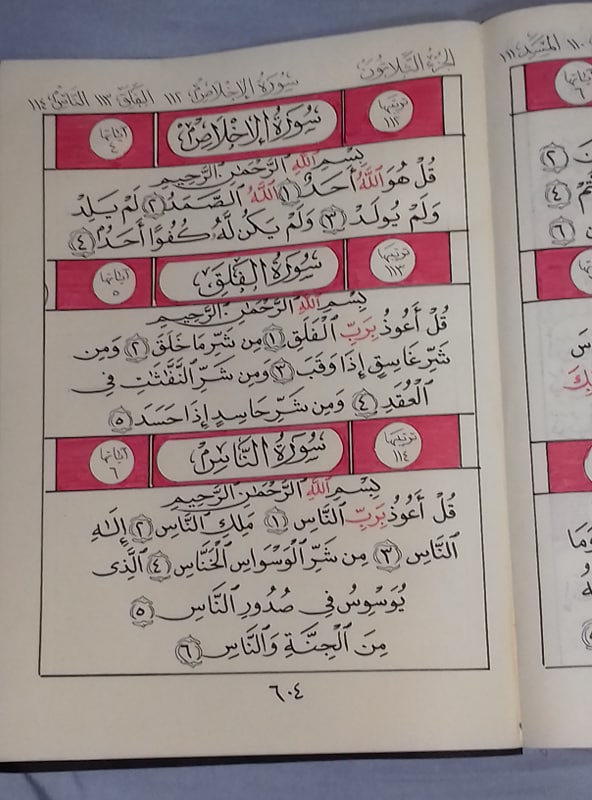 الجزء الثلاثون سورة الإخلاص ١١٢ الفلق ١١٣ الناس ١١٤
ترتيبها ١١٢ سورة الإخلاص آياتها ٤
بِسْمِ اللَّهِ الرَّحْمَٰنِ الرَّحِيمِ
قُلْ هُوَ اللَّهُ أَحَدٌ ١ اللَّهُ الصَّمَدُ ٢ لَمْ يَلِدْ
وَلَمْ يُولَدْ ٣ وَلَمْ يَكُن لَّهُ كُفُوًا أَحَدٌ ٤
ترتيبها ١١٣ سورة الفلق آياتها ٥
بِسْمِ اللَّهِ الرَّحْمَٰنِ الرَّحِيمِ
قُلْ أَعُوذُ بِرَبِّ الْفَلَقِ ١ مِن شَرِّ مَا خَلَقَ ٢ وَمِن
شَرِّ غَاسِقٍ إِذَا وَقَبَ ٣ وَمِن شَرِّ النَّفَّٰثَٰتِ فِى
الْعُقَدِ ٤ وَمِن شَرِّ حَاسِدٍ إِذَا حَسَدَ ٥
ترتيبها ١١٤ سورة الناس آياتها ٦
بِسْمِ اللَّهِ الرَّحْمَٰنِ الرَّحِيمِ
قُلْ أَعُوذُ بِرَبِّ النَّاسِ ١ مَلِكِ النَّاسِ ٢ إِلَٰهِ
النَّاسِ ٣ مِن شَرِّ الْوَسْوَاسِ الْخَنَّاسِ ٤ الَّذِى
يُوَسْوِسُ فِى صُدُورِ النَّاسِ ٥
مِنَ الْجِنَّةِ وَالنَّاسِ ٦
٦٠٤
المسد ١١١